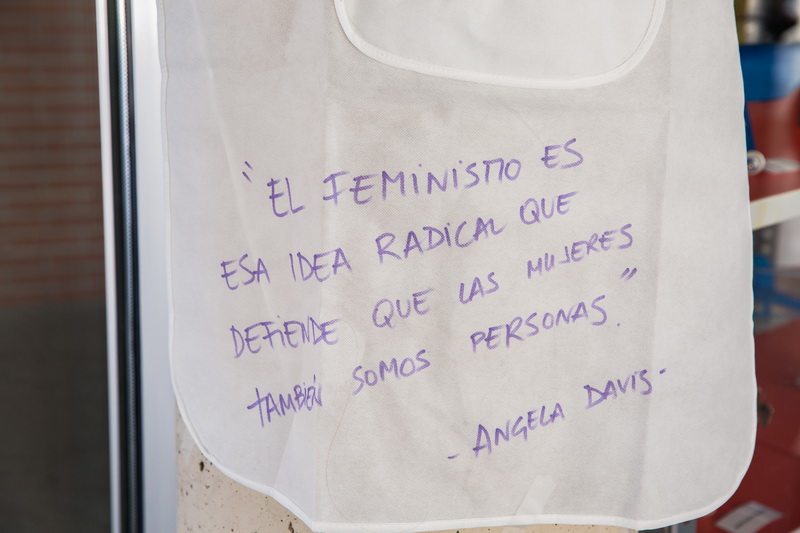 "EL FEMINISMO ES
ESA IDEA RADICAL QUE
DEFIENDE QUE LAS MUJERES
TAMBIÉN SOMOS PERSONAS."
- ANGELA DAVIS -